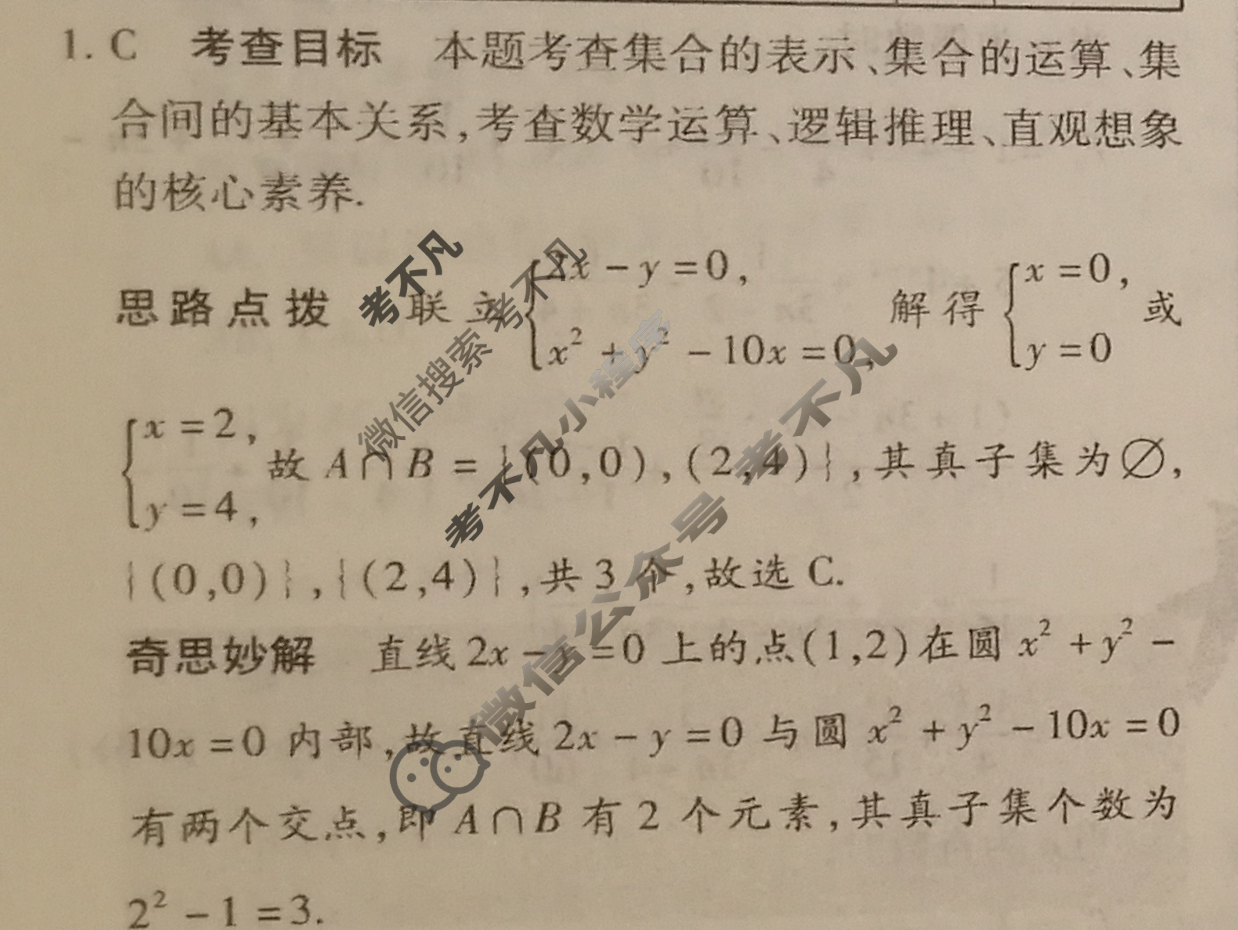 1. C 考查目标 本题考查集合的表示、集合的运算、集
合间的基本关系,考查数学运算、逻辑推理、直观想象
的核心素养.
思路点拨 联立{2x-y=0, x²+y²-10x=0, 解得{x=0, y=0 或
{x=2, y=4, 故A∩B={(0,0),(2,4)},其真子集为∅,
{(0,0)},{(2,4)},共3个,故选C.
奇思妙解 直线2x-y=0上的点(1,2)在圆x²+y²-
10x=0内部,故直线2x-y=0与圆x²+y²-10x=0
有两个交点,即A∩B有2个元素,其真子集个数为
2²-1=3.
考不凡
微信搜索 考不凡
考不凡小程序
微信公众号 考不凡